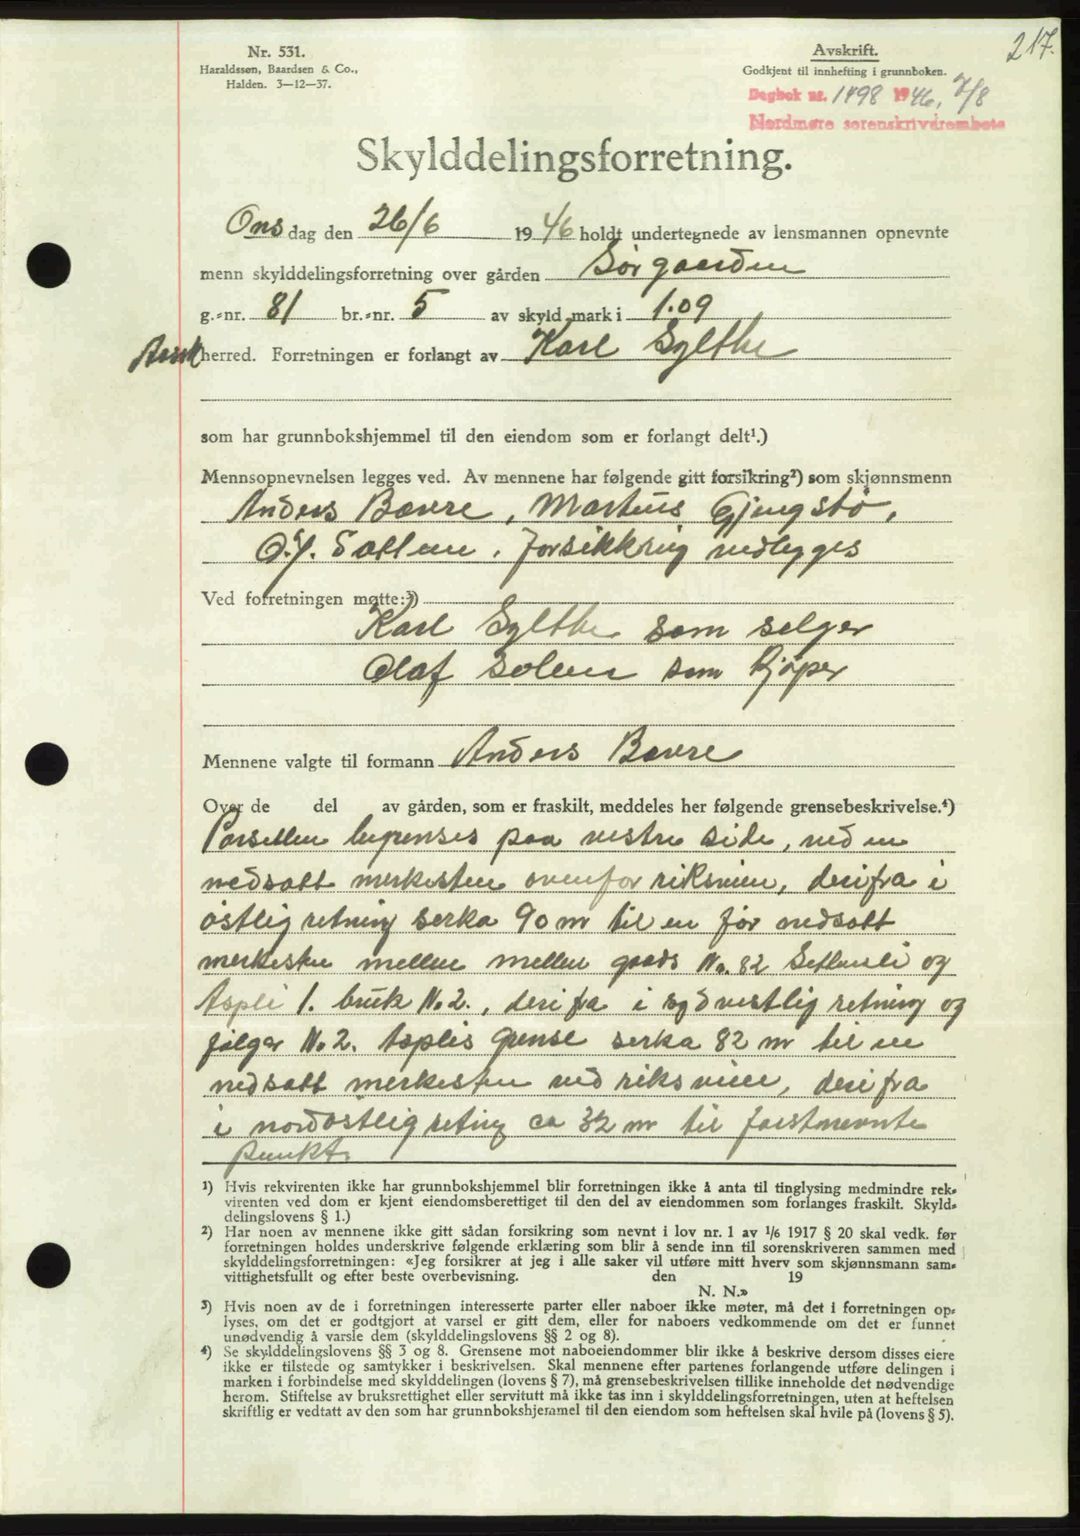 217.
Nr. 531.
Haraldssøn, Baardsen & Co.,
Halden. 3—12—37.
Avskrift.
Godkjent til innhefting i grunnboken.
Dagbok nr. 1498 1946, 7/8
Nordmøre sorenskriverembete
Skylddelingsforretning.
Onsdag den 26/6 1946 holdt undertegnede av lensmannen opnevnte
menn skylddelingsforretning over gården Sörgaarden
g.-nr. 81 br.-nr. 5 av skyld mark i 1.09
herred. Forretningen er forlangt av Karl Sylthe
som har grunnbokshjemmel til den eiendom som er forlangt delt¹.)
Mennsopnevnelsen legges ved. Av mennene har følgende gitt forsikring²) som skjønnsmenn
Anders Bævre, Martinus Gjengstö,
forsikkring vedlegges
Ved forretningen møtte:³)
Karl Sylthe som selger
Olaf Solem som kjöper
Mennene valgte til formann Anders Bævre
Over de del av gården, som er fraskilt, meddeles her følgende grensebeskrivelse.⁴)
Parsellen begenses paa vestre side, ved en
nedsatt merkesten ovenfor riksveien, derifra i
östlig retning serka 90 m til en för nedsatt
merkesten mellem mellem gaards No. 82 Setherli og
Aspli 1. bruk No 2., derifra i sydvestlig retning og
fölger No 2. Asplis grense serka 82 m til en
nedsatt merkesten ved riksveien, derifra
i nordöstlig retnig ca 32 m til förstnevnte
punkt.
¹) Hvis rekvirenten ikke har grunnbokshjemmel blir forretningen ikke å anta til tinglysing medmindre rek-
virenten ved dom er kjent eiendomsberettiget til den del av eiendommen som forlanges fraskilt. Skyld-
delingslovens § 1.)
²) Har noen av mennene ikke gitt sådan forsikring som nevnt i lov nr. 1 av 1/6 1917 § 20 skal vedk. før
forretningen holdes underskrive følgende erklæring som blir å sende inn til sorenskriveren sammen med
skylddelingsforretningen: «Jeg forsikrer at jeg i alle saker vil utføre mitt hverv som skjønnsmann sam-
vittighetsfullt og efter beste overbevisning. den 19
N. N.»
³) Hvis noen av de i forretningen interesserte parter eller naboer ikke møter, må det i forretningen op-
lyses, om det er godtgjort at varsel er gitt dem, eller for naboers vedkommende om det er funnet
unødvendig å varsle dem (skylddelingslovens §§ 2 og 8).
⁴) Se skylddelingslovens §§ 3 og 8. Grensene mot naboeiendommer blir ikke å beskrive dersom disses eiere
ikke er tilstede og samtykker i beskrivelsen. Skal mennene efter partenes forlangende utføre delingen i
marken i forbindelse med skylddelingen (lovens § 7), må grensebeskrivelsen tillike inneholde det nødvendige
herom. Stiftelse av bruksrettighet eller servitutt må ikke tas inn i skylddelingsforretningen, uten at heftelsen
skriftlig er vedtatt av den som har grunnbokshjemmel til den eiendom som heftelsen skal hvile på (lovens § 5).